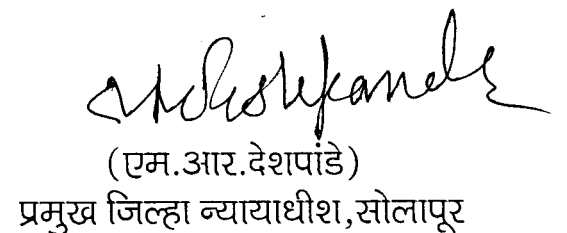 (एम.आर.देशपांडे)
प्रमुख जिल्हा न्यायाधीश,सोलापूर